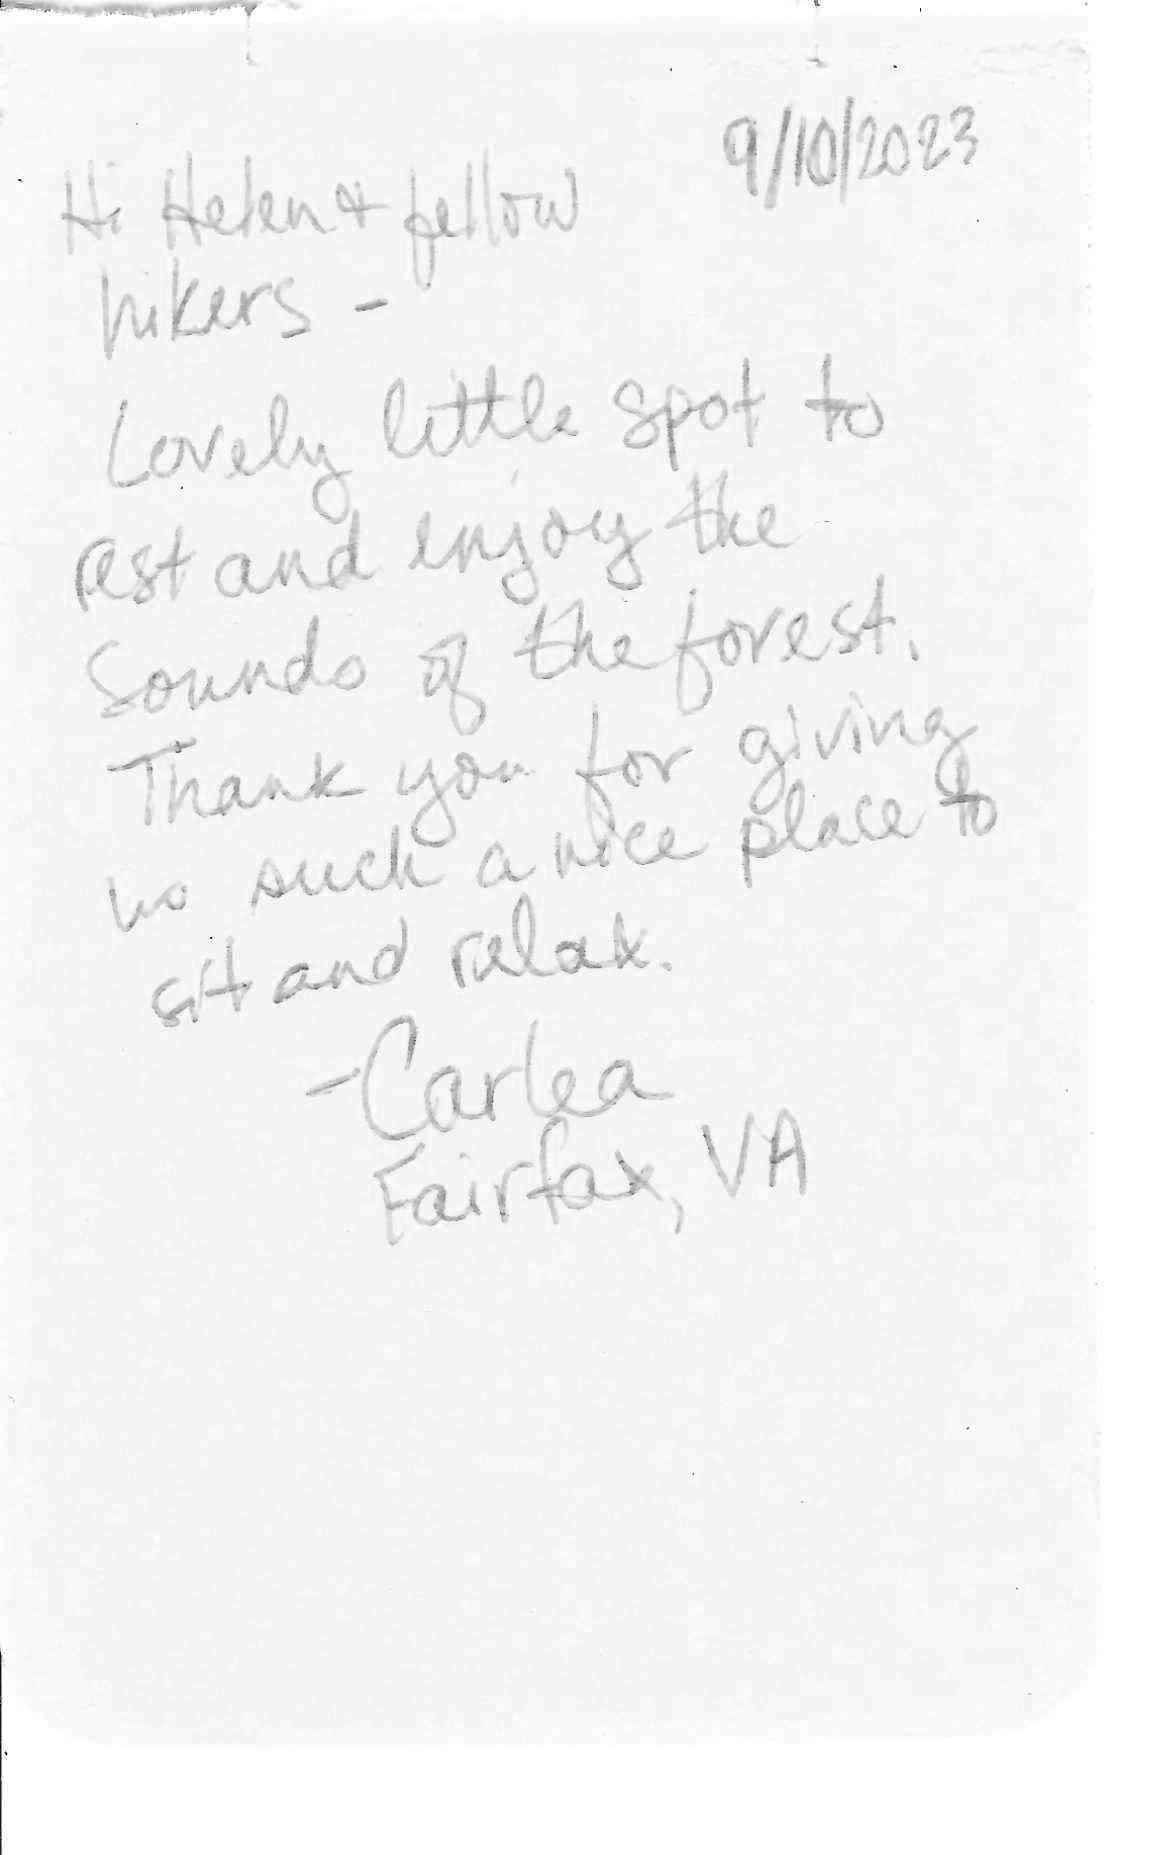 9/10/2023
Hi Helen & fellow
hikers -
Lovely little spot to
rest and enjoy the
sounds of the forest.
Thank you for giving
us such a nice place to
sit and relax.
- Carlea
Fairfax, VA